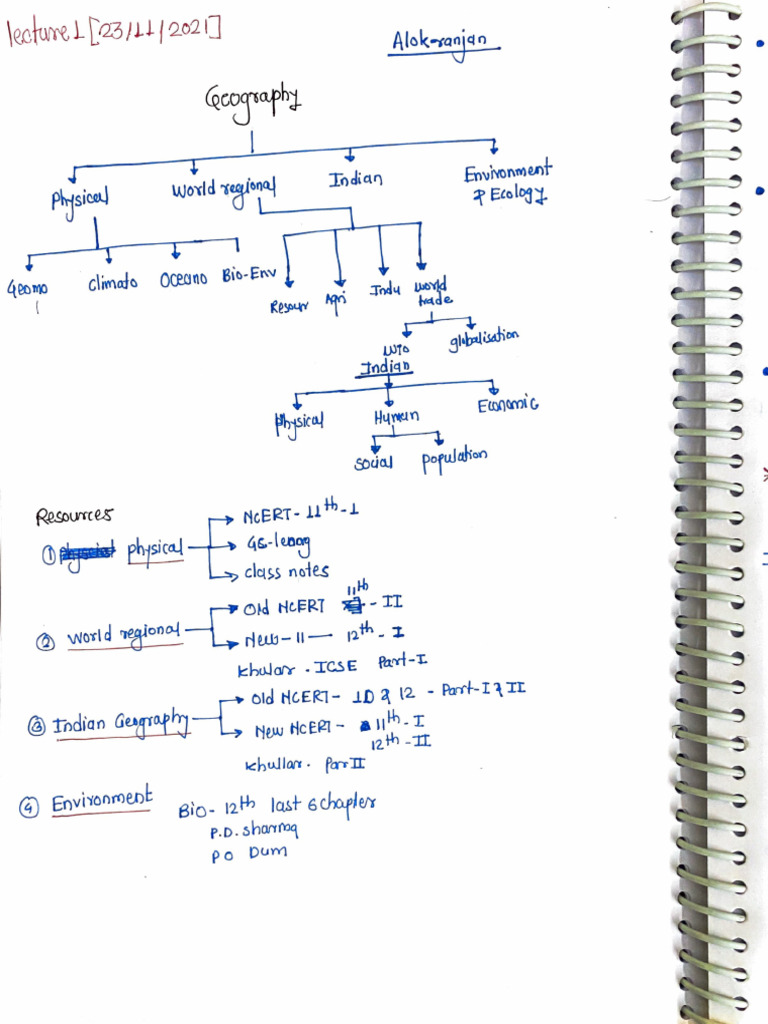 lecture 1 [23/11/2021]
Alok-ranjan
Geography
Physical World regional Indian Environment
& Ecology
Geomo Climato Oceano Bio-Env
Resour Agri Indu World
trade
WTO globalisation
Indian
Physical Human Economic
social population
Resources
① physical
NCERT - 11th - 1
GS-leong
class notes
② World regional
Old NCERT 11th - II
New - 11 — 12th - I
Khular . ICSE Part-I
③ Indian Geography
Old NCERT - 10 & 12 - Part-I & II
New NCERT - 11th - I
12th - II
Khullar. Par II
④ Environment
Bio- 12th last 6 chapter
P.D. sharma
P O Dum